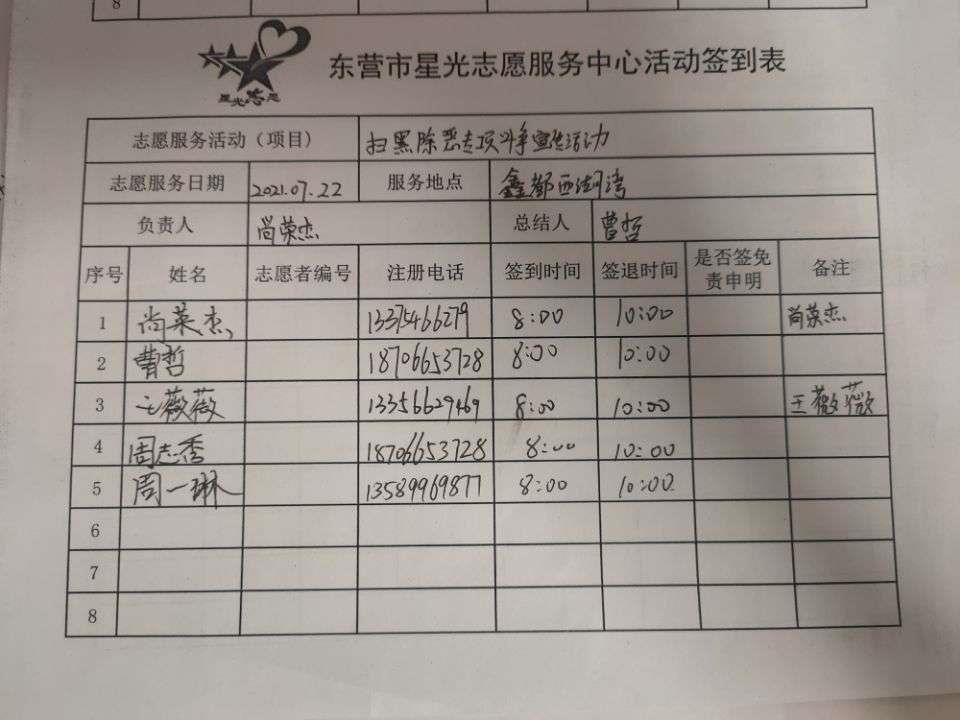 8
星光志愿
东营市星光志愿服务中心活动签到表
志愿服务活动（项目） 扫黑除恶专项斗争宣传活动
志愿服务日期 2021.07.22 服务地点 鑫都西湖湾
负责人 尚荣杰 总结人 曹哲
序号 姓名 志愿者编号 注册电话 签到时间 签退时间 是否签免责申明 备注
1 尚荣杰 13375466279 8:00 10:00 尚荣杰
2 曹哲 18706653728 8:00 10:00
3 王薇薇 13356629469 8:00 10:00 王薇薇
4 周志香 18706653728 8:00 10:00
5 周一琳 13589969877 8:00 10:00
6
7
8